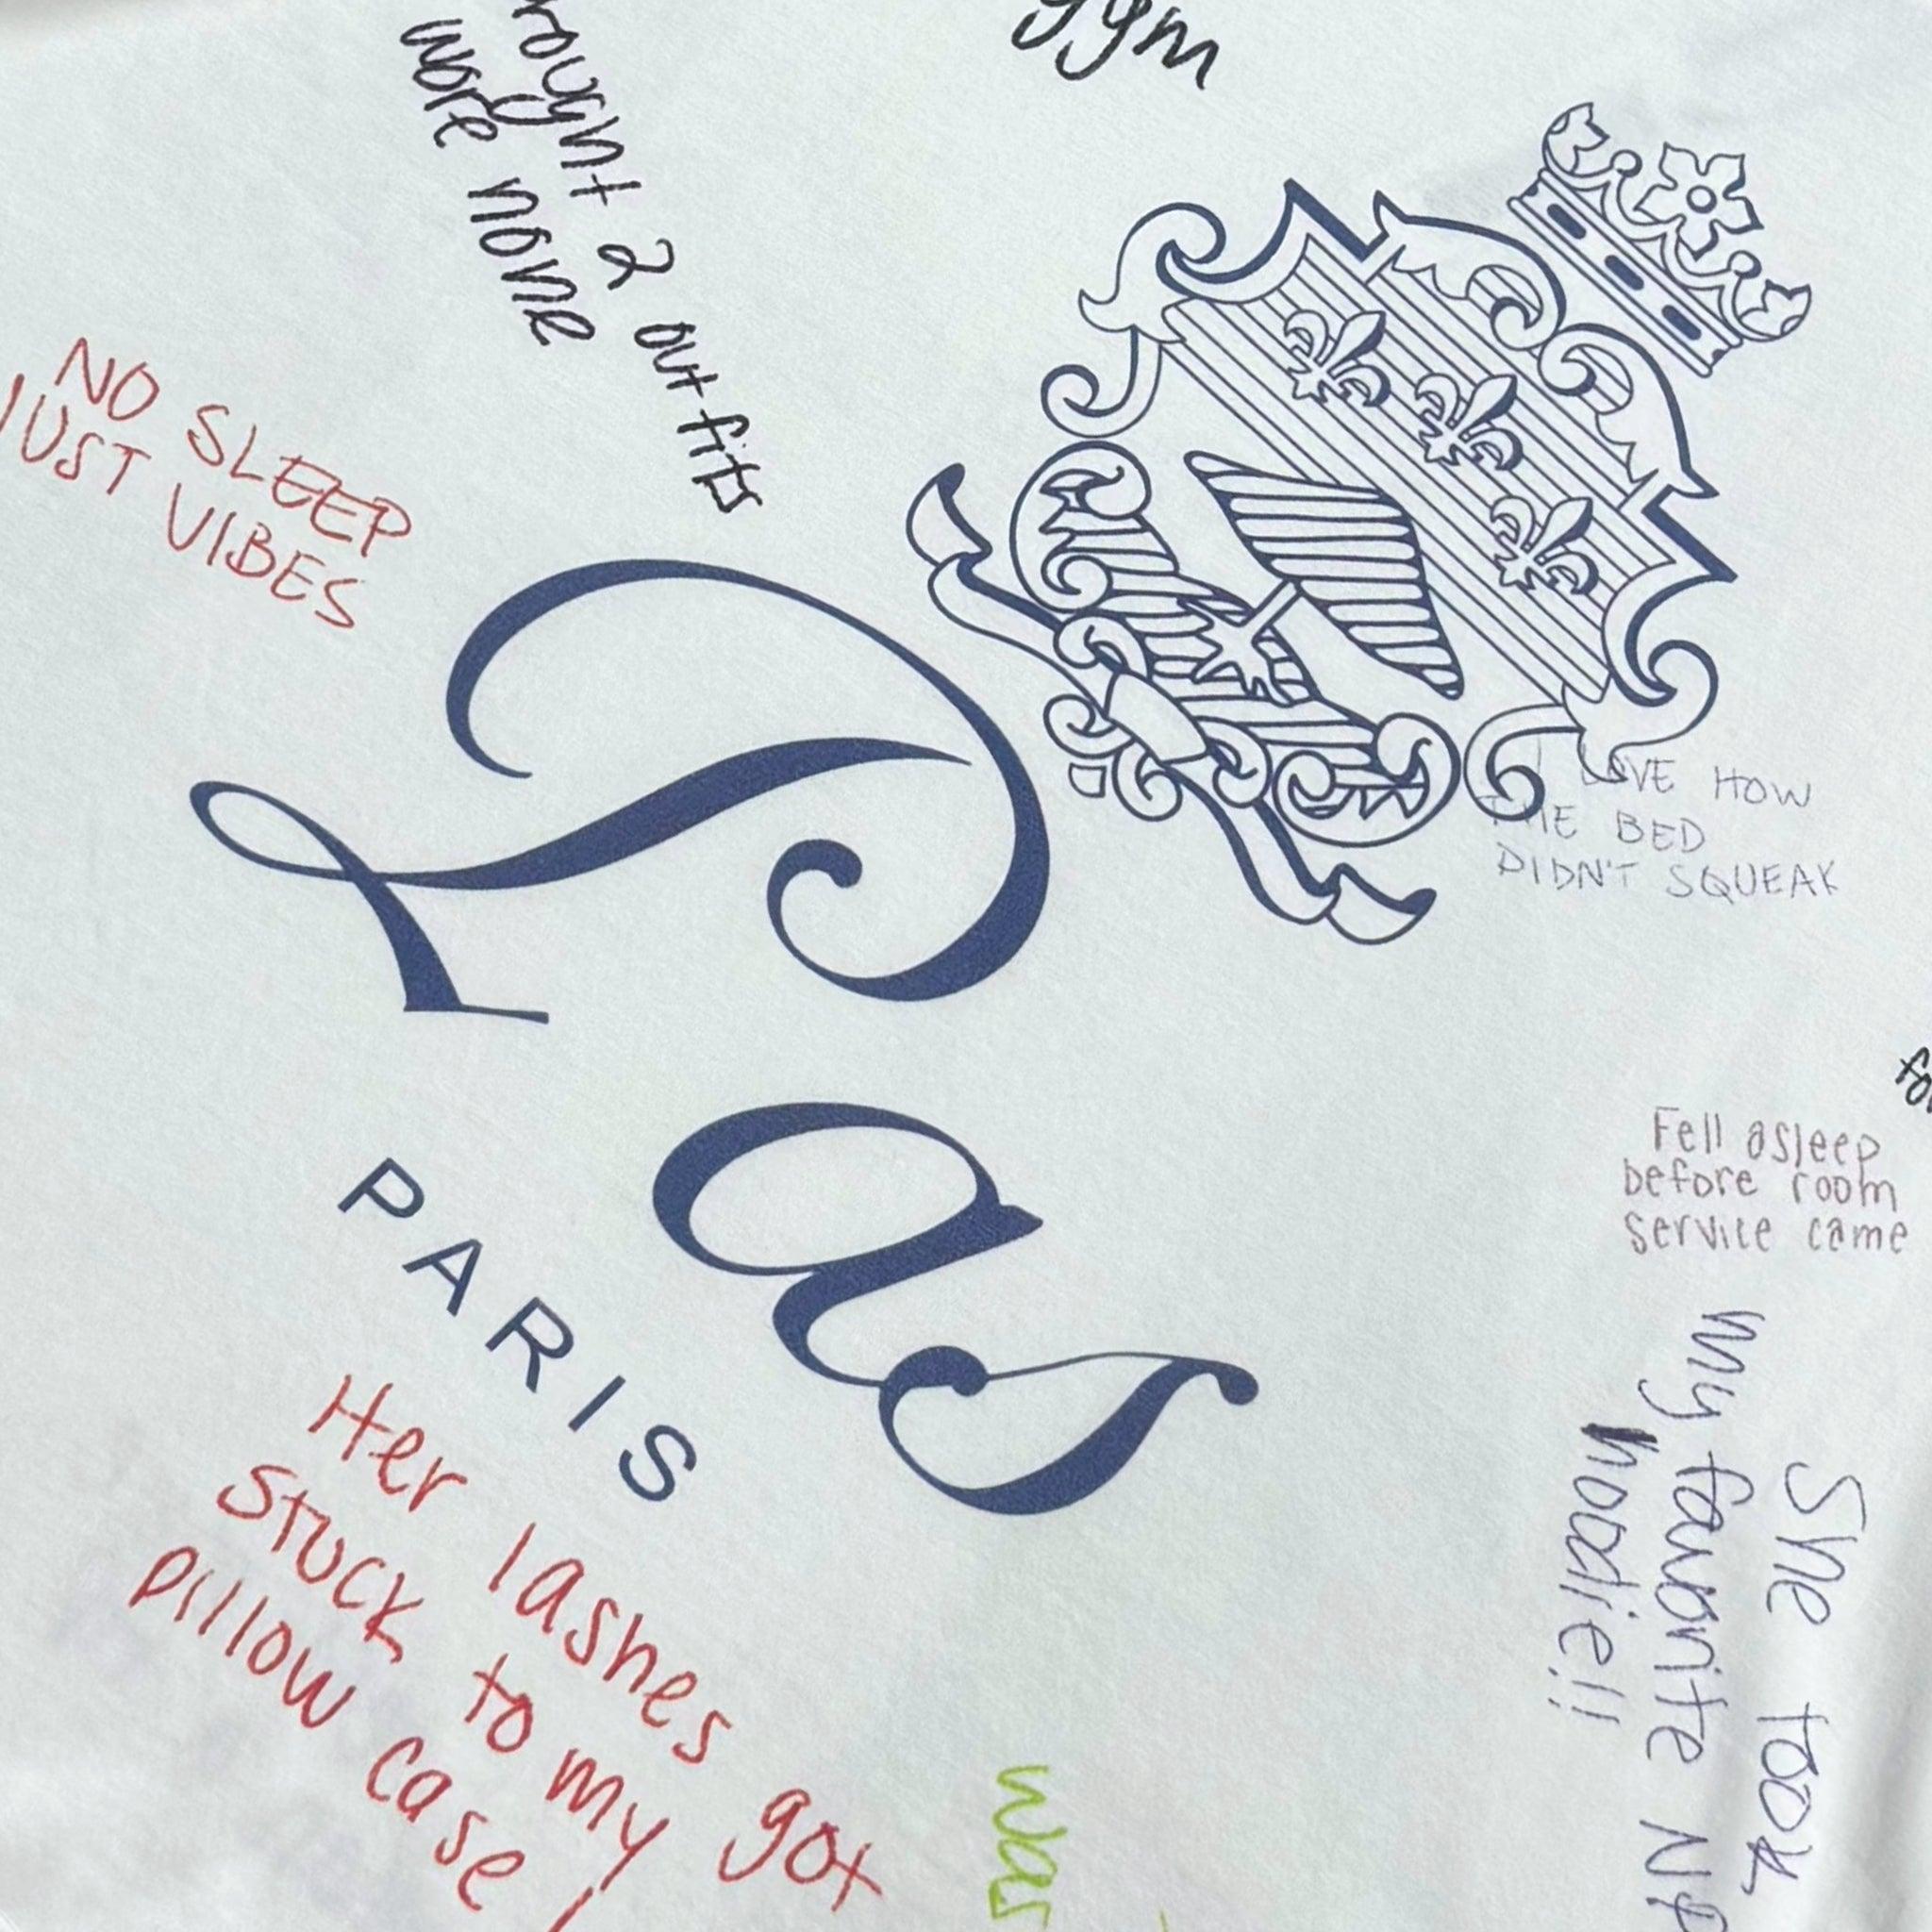 gym
rought 2 outfits
wore none
NO SLEEP
JUST VIBES
I LOVE HOW
THE BED
DIDN'T SQUEAK
Pas
PARIS
Fell asleep
before room
service came
She took
my favorite
hoodie!!
Her lashes got
stuck to my
pillow case!
was